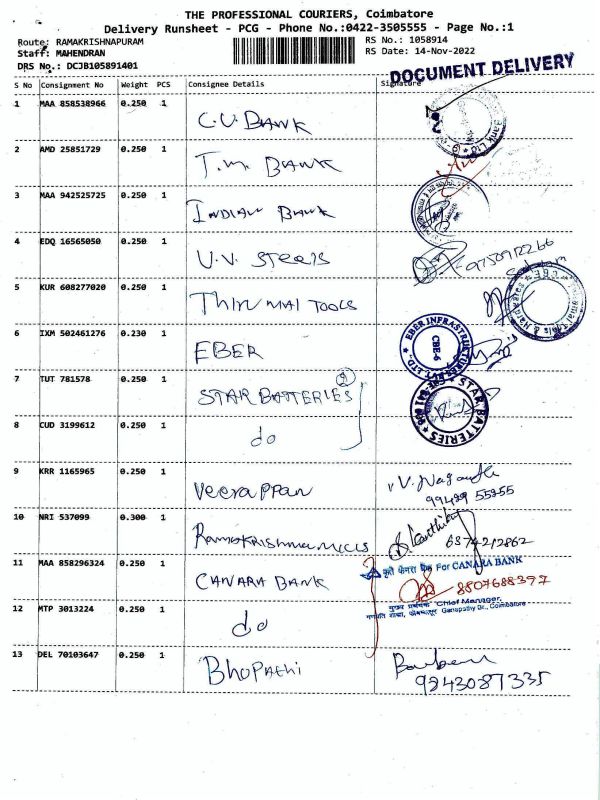 THE PROFESSIONAL COURIERS, Coimbatore
Delivery Runsheet - PCG - Phone No.:0422-3505555 - Page No.:1
Route: RAMAKRISHNAPURAM
RS No.: 1058914
Staff: MAHENDRAN
RS Date: 14-Nov-2022
DRS No.: DCJB105891401
DOCUMENT DELIVERY
S No Consignment No Weight PCS Consignee Details Signature
1 MAA 858538966 0.250 1 C.U. BANK
2 AMD 25851729 0.250 1 T.M. BANK
3 MAA 942525725 0.250 1 INDIAN BANK
4 EDQ 16565050 0.250 1 V.V. Steels
9750912266
5 KUR 608277020 0.250 1 Thiru MAI TOOLS
6 IXM 502461276 0.230 1 EBER
EBER INFRASTRUCTURE PVT. LTD. CBE-6
7 TUT 781578 0.250 1 STAR BATTERIES 2
STAR BATTERIES
8 CUD 3199612 0.250 1 do
9 KRR 1165965 0.250 1 Veerappan
99429 55255
10 NRI 537099 0.300 1 Ramakrishna Mills
Karthik
6374212862
11 MAA 858296324 0.250 1 CANARA BANK
कृते केनरा बैंक For CANARA BANK
8807688397
Chief Manager,
Ganapathy Br., Coimbatore
12 MTP 3013224 0.250 1 do
13 DEL 70103647 0.250 1 Bhopathi
9243087335